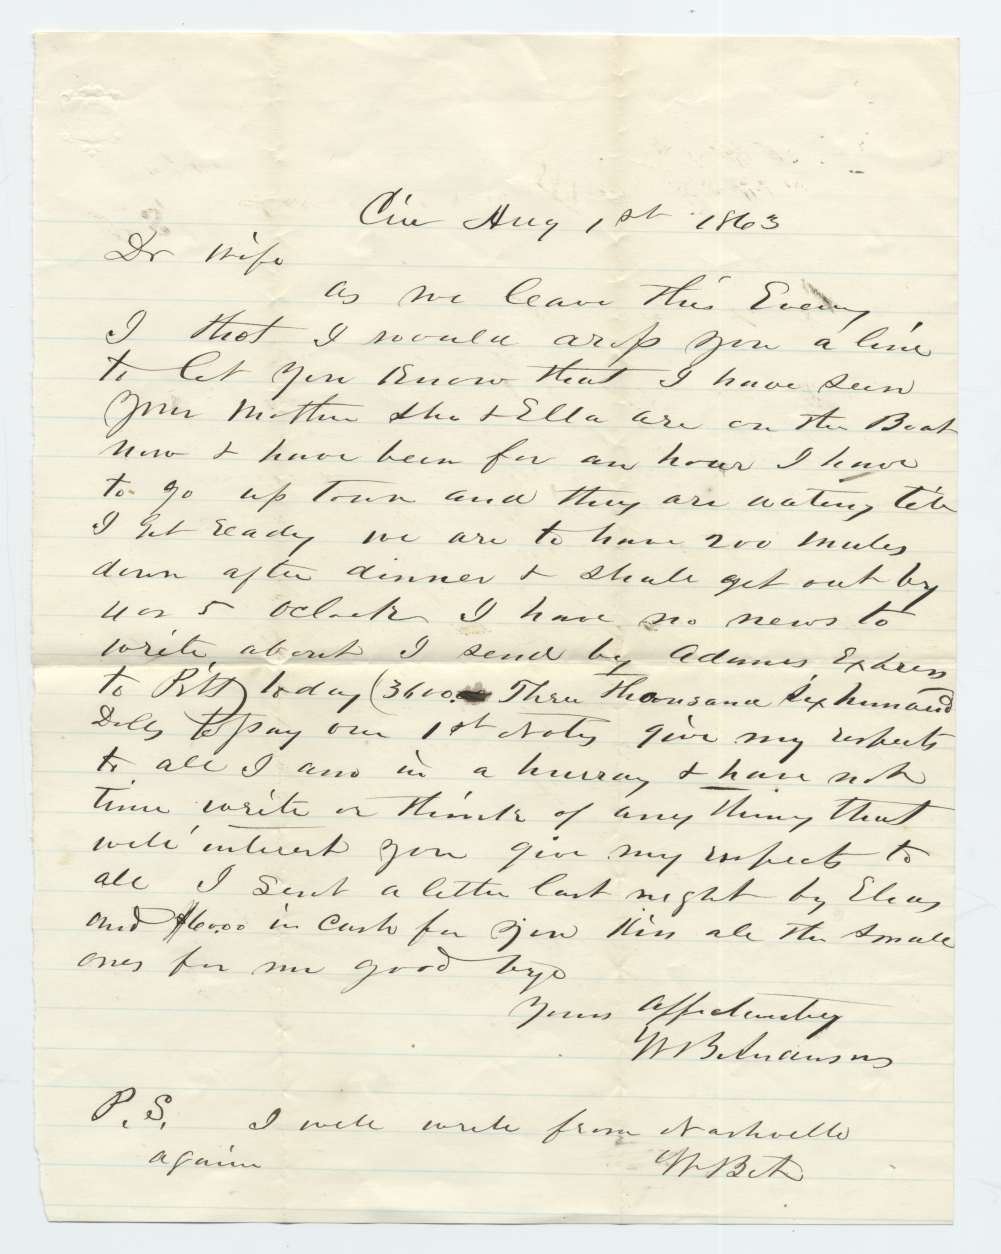 Cin Aug 1st 1863
Dr Wife
as we leave this Evening
I thot I would drop you a line
to let you Know that I have seen
your Mother She & Ella are on the Boat
now & have been for an hour I have
to go up Town and they are wating till
I get ready we are to have 200 Mules
down after dinner & shall get out by
4 or 5 Oclock I have no news to
write about I send by Adams Express
to Pitt today (3600.00 Three Thousand Six hundred
Dolls) to pay our 1st Notes give my respects
to all I am in a hurray & have not
time write or think of any thing that
will interest you give my respects to
all I sent a letter last night by Elias
and $60.00 in Cash for you Kiss all the small
ones for me good bye
Yours Affectunatley
W
P.S. I will write from Nashville
again
W B